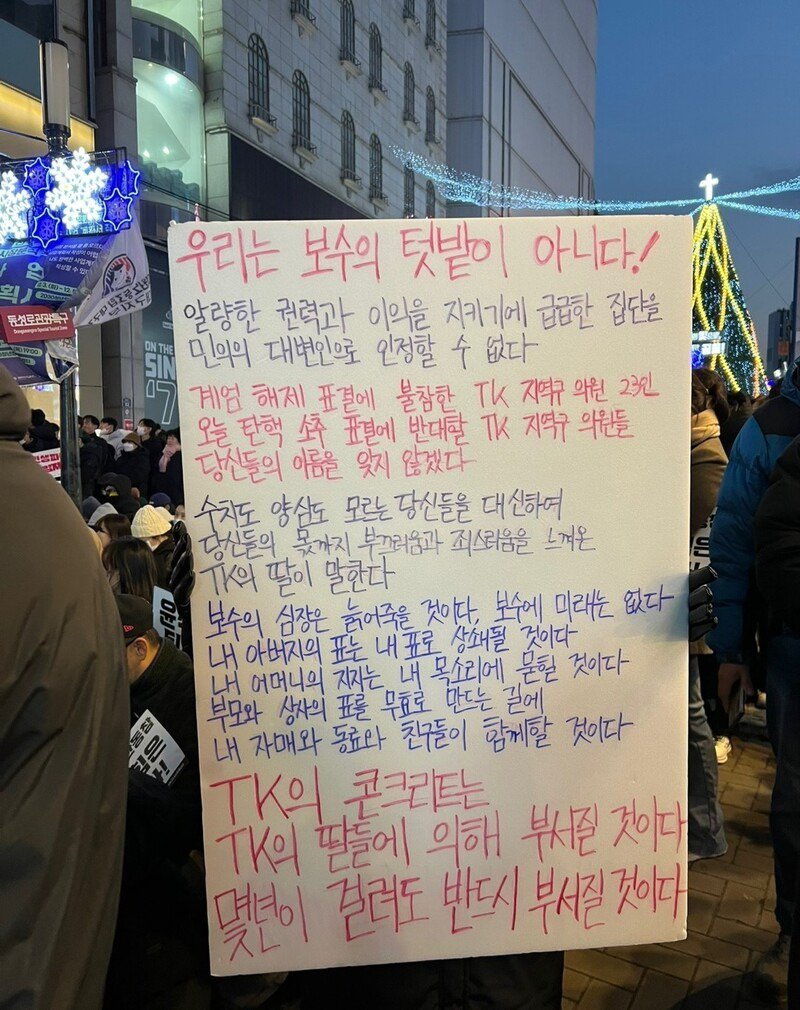 우리는 보수의 텃밭이 아니다!
알량한 권력과 이익을 지키기에 급급한 집단을
민의의 대변인으로 인정할 수 없다
계엄 해제 표결에 불참한 TK 지역구 의원 23인
오늘 탄핵 소추 표결에 반대할 TK 지역구 의원들
당신들의 이름을 잊지 않겠다
수치도 양심도 모르는 당신들을 대신하여
당신들의 몫까지 부끄러움과 죄스러움을 느껴온
TK의 딸이 말한다
보수의 심장은 늙어죽을 것이다, 보수에 미래는 없다
내 아버지의 표는 내 표로 상쇄될 것이다
내 어머니의 지지는 내 목소리에 묻힐 것이다
부모와 상사의 표를 무효로 만드는 길에
내 자매와 동료와 친구들이 함께할 것이다
TK의 콘크리트는
TK의 딸들에 의해 부서질 것이다
몇년이 걸려도 반드시 부서질 것이다
동성로관광특구
Dongseongro Special Tourist Zone
ON THE
SIN
'7